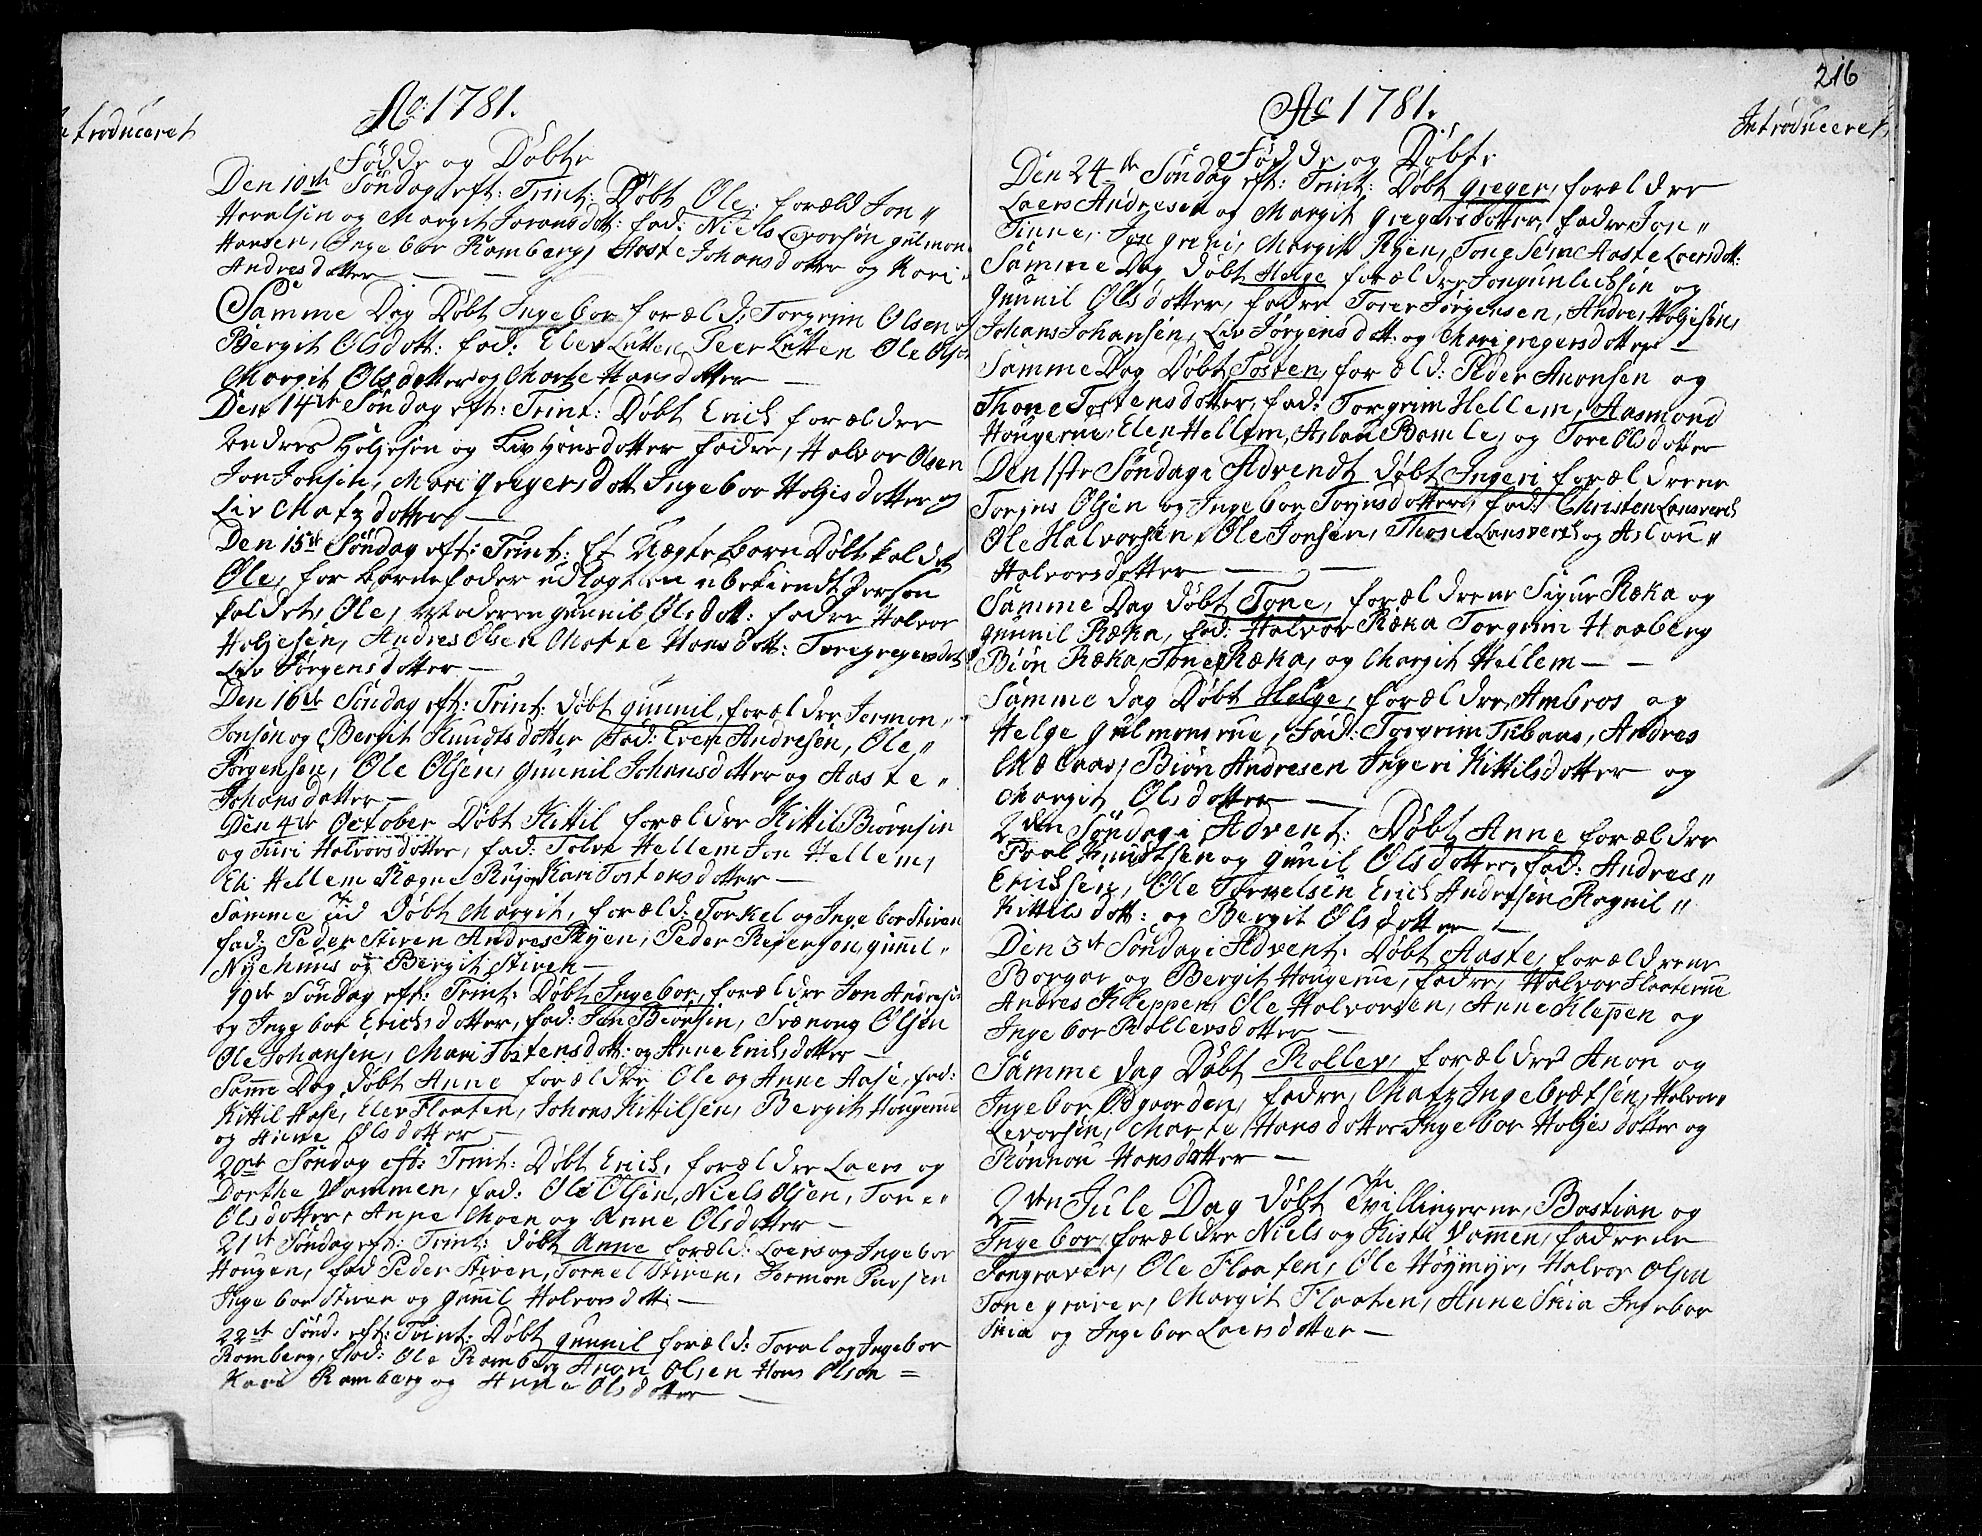 Introduceret
Ao: 1781.
Födde og Döbte
Den 10de Söndag eft: Trint: Döbt Ole: foræld Jon
og Margit fad: Niels Levorsen
Hansen, Ingebor Ramberg, Aaste Johansdotter og Kari
Andresdotter
Samme Dag Döbt Ingebor foræld: Torgrim Olsen og
Bergit Olsdott: fad: Elev Lutten, Peer Lutten Ole Olsen
Margit Olsdotter og Marte Hansdotter —
Den 14de Söndag eft: Trint: Döbt Erich forældre
Andres Holjesen og Liv Hansdotter fadre, Halvor Olsen
Jon Jonsen, Mari Gregersdott Ingebor Holjesdotter og
Liv Matzdotter —
Den 15de Söndag eft: Trint: Et Uægte Barn Döbt kaldet
Ole, for Barnefader udlagt en ubekiendt Person
kaldet, Ole, Moderen Gunnil Olsdott: fadre Halvor
Holjesen, Andres Olsen Marte Hansdott: Tore Gregersdott
Liv Jörgensdotter —
Den 16de Söndag eft: Trint: Döbt Gunnil, forældre Jermon
Jonsen og Bergit Knudtsdotter fad: Even Andresen, Ole
Jörgensen, Ole Olsen, Gunnil Johansdotter og Aaste
Johansdotter —
Den 4de October Döbt Kittil forældre Kittil Biörnsen
og Turi Halvorsdotter, fad: Tolv Hellem Jon Hellem,
Eli Hellem Ragne Ruja Kari Tostensdotter —
Samme Tid Döbt Margit, foræld: Torkel og Ingebor Stiven
fad: Peder Stiven Andres Ryen, Peder Gunnil
Nyehuus og Bergit Stiven —
19de Söndag eft: Trint: Döbt Ingebor, forældre Jon Andresen
og Ingebor Erichsdotter, fad: Jon Biörnsen, Svænong Olsen
Ole Johansen, Mari Tostensdott: og Anne Erichsdotter —
Samme Dag Döbt Anne forældre Ole og Anne Aase, fad:
Kittil Aase, Elev Flaaten, Johans Kittilsen, Bergit Hougerue
og Anne Olsdotter —
20de Söndag eft: Trint: Döbt Erich, forældre Laers og
Dorthe Vammen, fad: Ole Olsen, Niels Olsen, Tore
Olsdotter, Anne Moen og Anne Olsdotter —
21de Söndag eft: Trint: Döbt Anne foræld: Laers og Ingebor
Hougen, fad Peder Stiven, Torkel Stiven, Jermon
Ingebor Stiven og Gunnil Halvorsdott: —
22de Sönd: eft: Trint: Döbt Gunnil foræld: Toral og Ingebor
Ramberg, fad: Ole Ramberg Anon Olsen Hans Olsen =
Kari Ramberg og Anne Olsdotter —
216
Ao 1781.
Introduceret
Födde og Döbte
Den 24de Söndag eft: Trint: Döbt Greger, forældre
Laers Andresen og Margit Gregersdotter, fadre Jon
Tinne, Jon Margit Ryen, Tone Sem Aaste Laersdott:
Samme Dag Döbt Helge forældre Jon Gunlechsen og
Gunnil Olsdotter, fadre Torer Jörgensen, Andres Holjesen,
Johans Johansen, Liv Jörgensdott: og Mari Gregersdotter —
Samme Dag Döbt Tosten, foræld: Peder Anonsen og
Thone Tostensdotter, fad: Torgrim Hellem, Aasmond
Hougerue, Elen Hellem, Aslou Bamle, og Tore Olsdotter
Den 1ste Söndag i Advendt Döbt Ingeri forældrene
Torjus Olsen og Ingebor Torjusdotter, fad: Christen Lonsverch
Ole Halvorsen, Ole Jonsen, Thone Lonsverch og Aslou
Halvorsdotter —
Samme Dag Döbt Tone, forældrene Sigur Ræka og
Gunnil Ræka, fad: Halvor Ræka Torgrim Haaberg
Biön Ræka, Tone Ræka, og Margit Hellem — —
Samme dag Döbt Helge, forældre, Ambros og
Helge Gulmonsrue, fad: Torgrim Andres
Biön Andresen Ingeri Kittilsdotter og
Margit Olsdotter —
2den Söndag i Advent: Döbt Anne forældre
Poal Knudtsen og Gunil Olsdotter, fad: Andres
Erichsen, Ole Erich Andresen Ragnil
Kittilsdott: og Bergit Olsdotter —
Den 3de Söndag i Advent: Döbt Aaste, forældrene
Borgar og Bergit Hougerue, fadre, Halvor Flaaterue
Andres Kleppen, Ole Halvorsen, Anne Klepen og
Ingebor Rollevsdotter —
Samme dag Döbt Rollev, forældre Anon og
Ingebor Ödgaarden, fadre, Matz Ingebretsen, Halvor
Levorsen, Marte Hansdotter Ingebor Holjesdotter og
Rönnou Hansdotter —
2den Jule Dag Döbt Tvillingerne, Bastian og
Ingebor, forældre Niels og Kisti Vamen, fadrene
Jon Graver, Ole Flaaten, Ole Höymyr, Halvor Olsen
Tone Graver, Margit Flaaten, Anne Skia Ingebor
Skia og Ingebor Laersdotter —